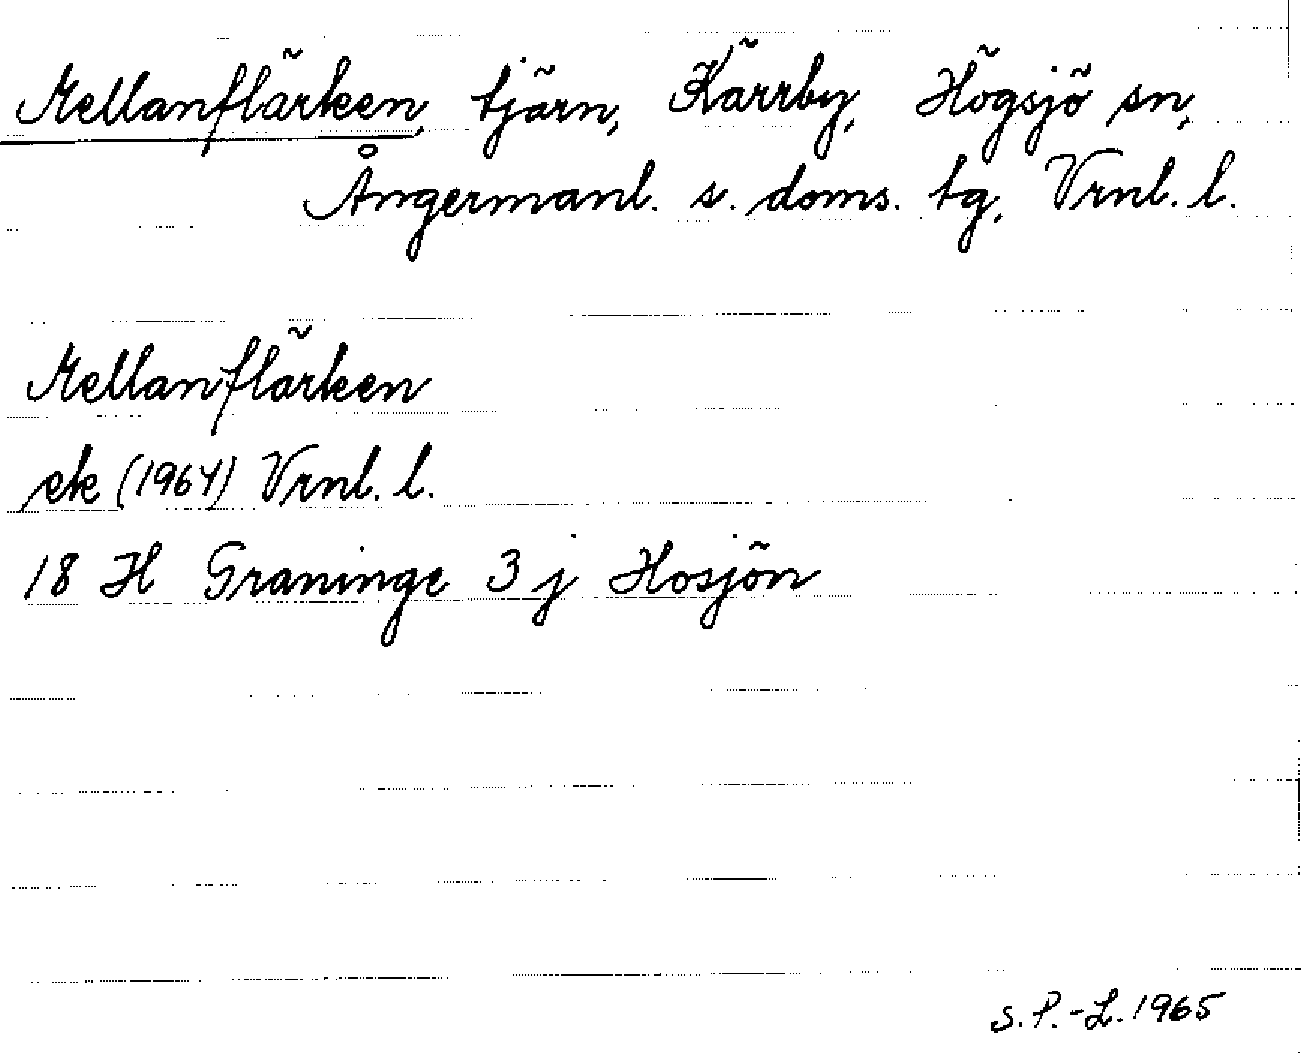 Mellanflärken, tjärn, Kärrby, Högsjö sn,
Ångermanl. s. doms. tg, Vrnl. l.
Mellanflärken
ek (1964) Vrnl. l.
18 H Graninge 3 j Hosjön
S. P.-L. 1965